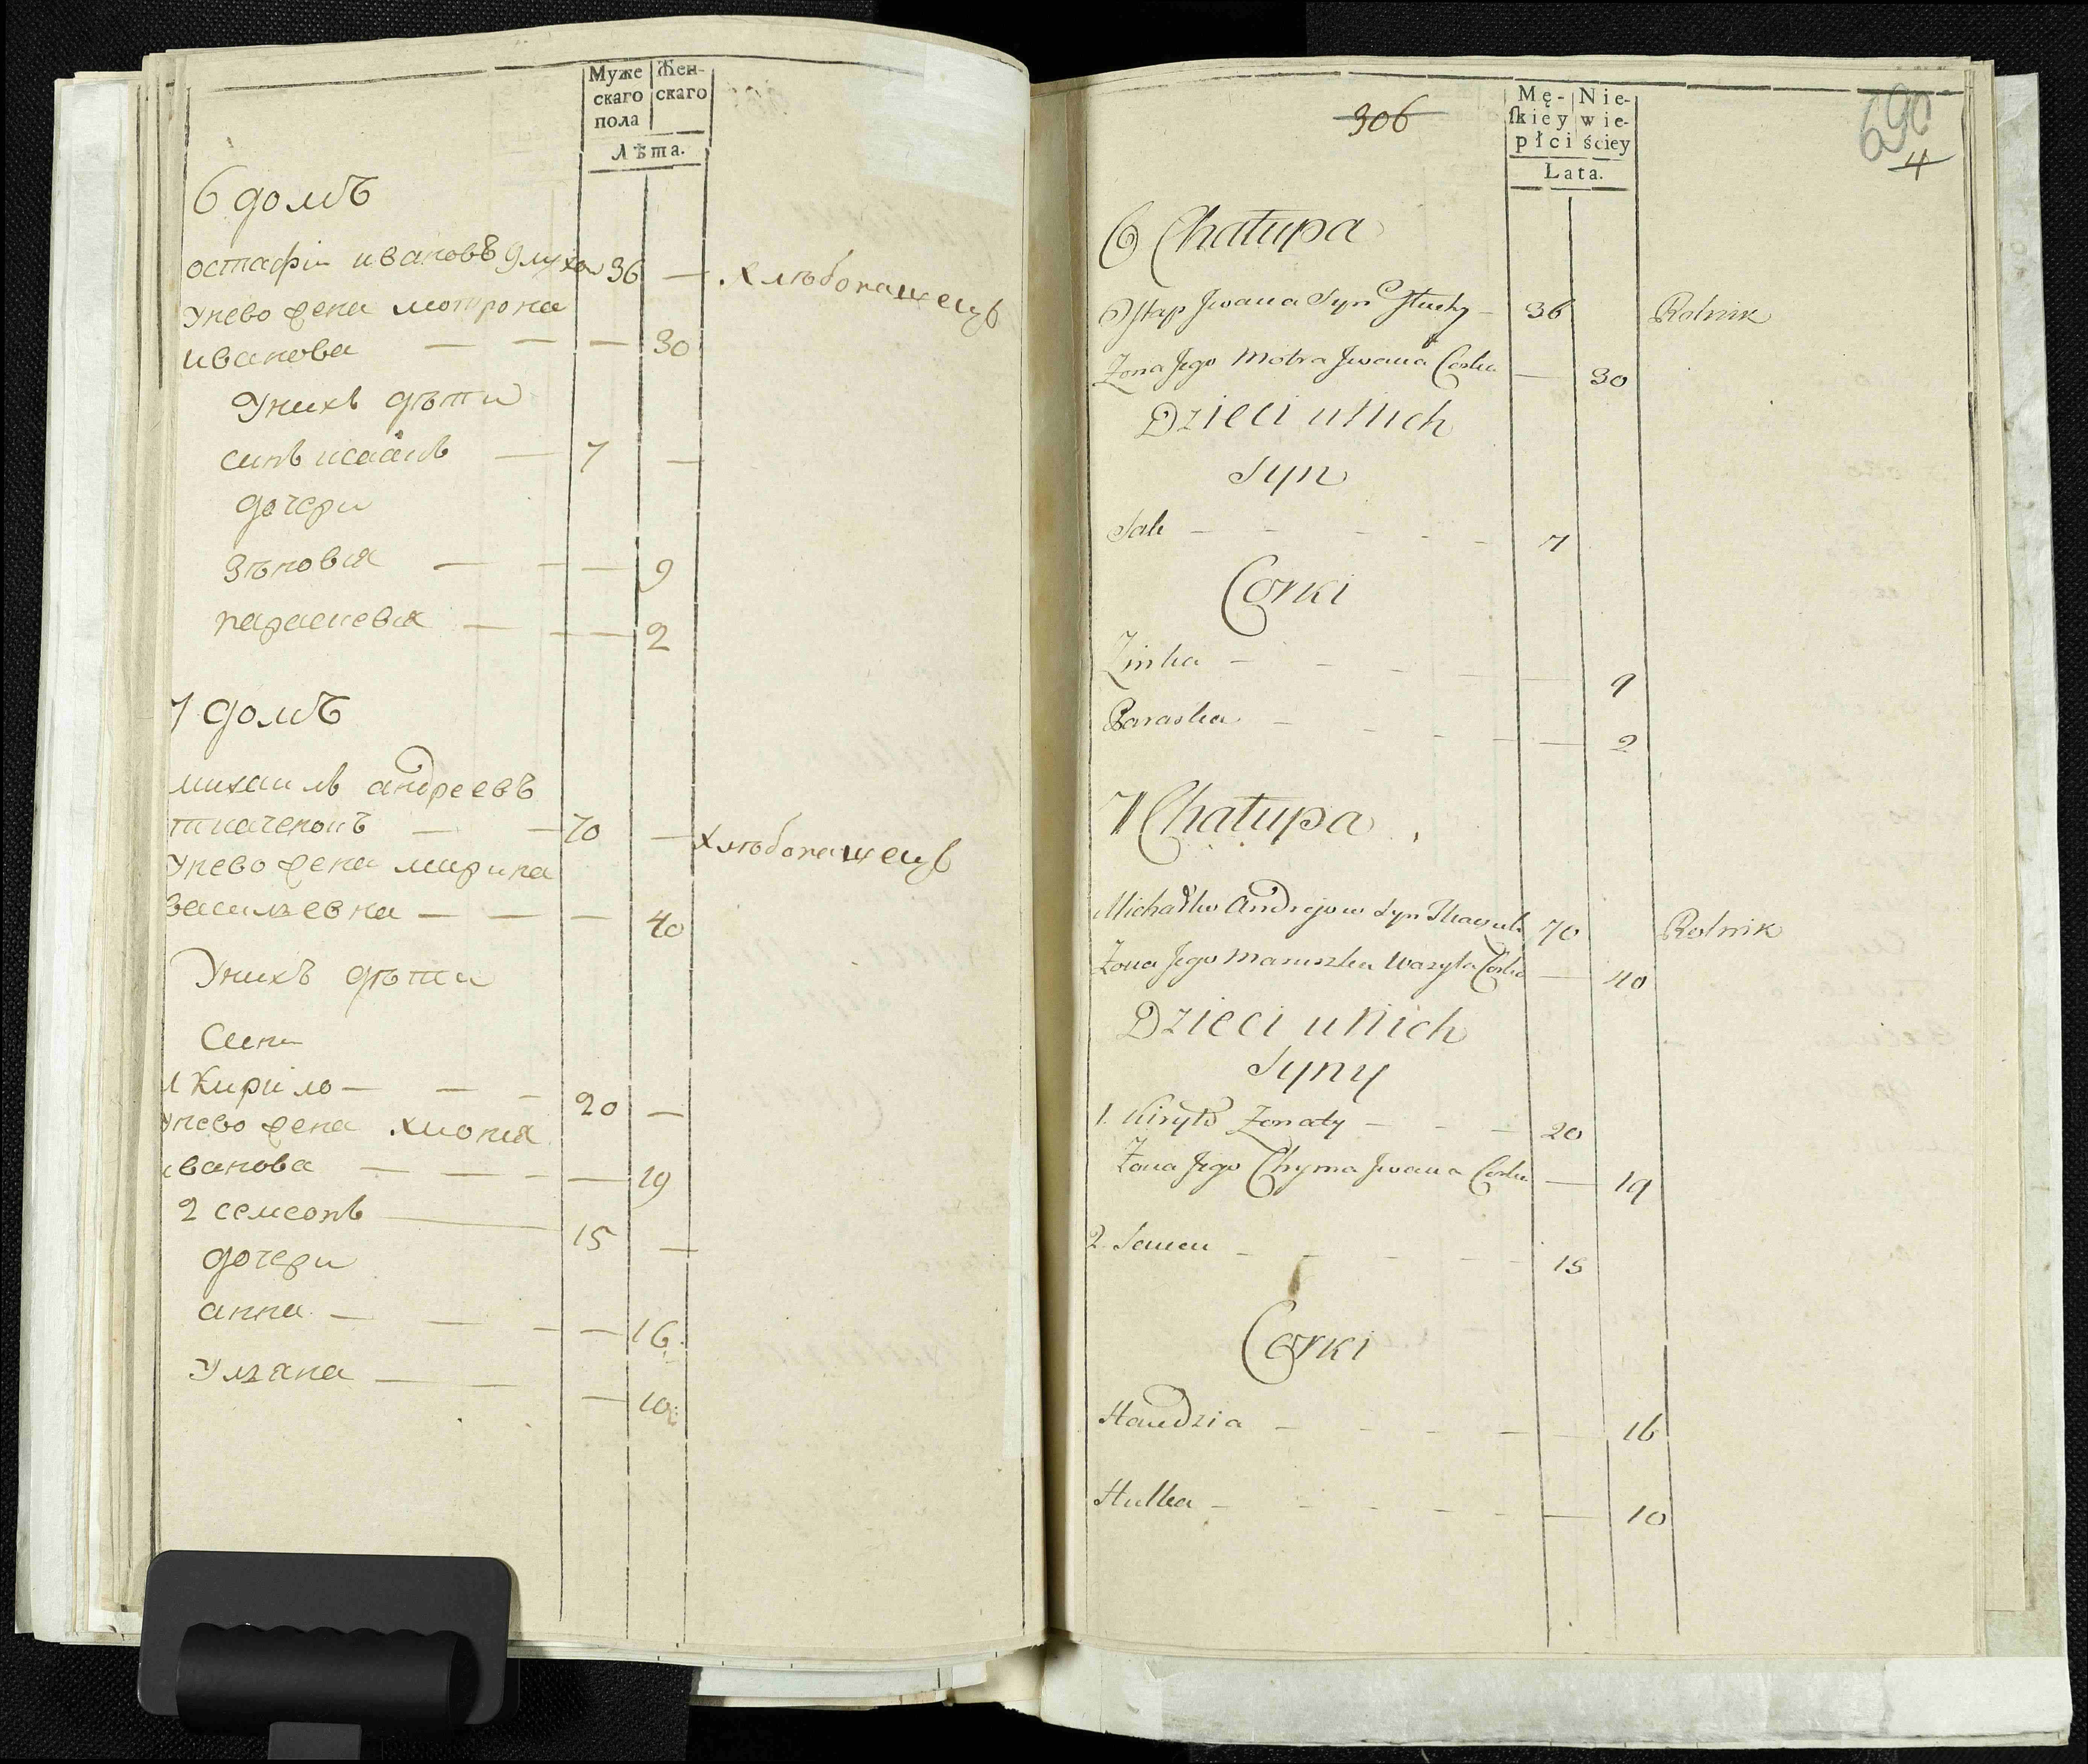 Муже Жен-
скаго скаго
пола
Лѣта.
6 домъ
остафіи ивановъ глухои 36 — хлѣбопашецъ
унево жена мотрона
иванова — — — 30
Унихъ дѣти
синъ исаакъ — 7 —
дочери
зѣновия — — — 9
параскевия — — — 2
7 домъ
михаилъ андреевъ
ткаченокъ — — 70 — хлѣбопашецъ
унево жена марина
василевна — — — 40
Унихъ дѣти
Сини
1 Кирило — — — 20 —
унево жена хиония
иванова — — — — 19
2 семеонъ — 15 —
дочери
анна — — — — 16
Улияна — — — 10
306
690
4
Mę- Nie-
ſkiey wie-
płci ściey
Lata.
6 Chałupa
Ostap Jwana Syn Głuchy — 36 Rolnik
Zona Jego Motra Jwana Corka — 30
Dzieci u Nich
Syn
Sak — — — — — 7
Corki
Zinka — — — — — 9
Paraska — — — — — 2
7 Chałupa
Michałko Andrejow Syn 70 Rolnik
Zona Jego Maruszka Wasyla Corka — 40
Dzieci u Nich
Syny
1. Kiryło Zonaty — — — 20
Zona Jego Chyma Jwana Corka — 19
2. Semen — — — — — 15
Corki
Handzia — — — — — 16
Hulka — — — — — — 10